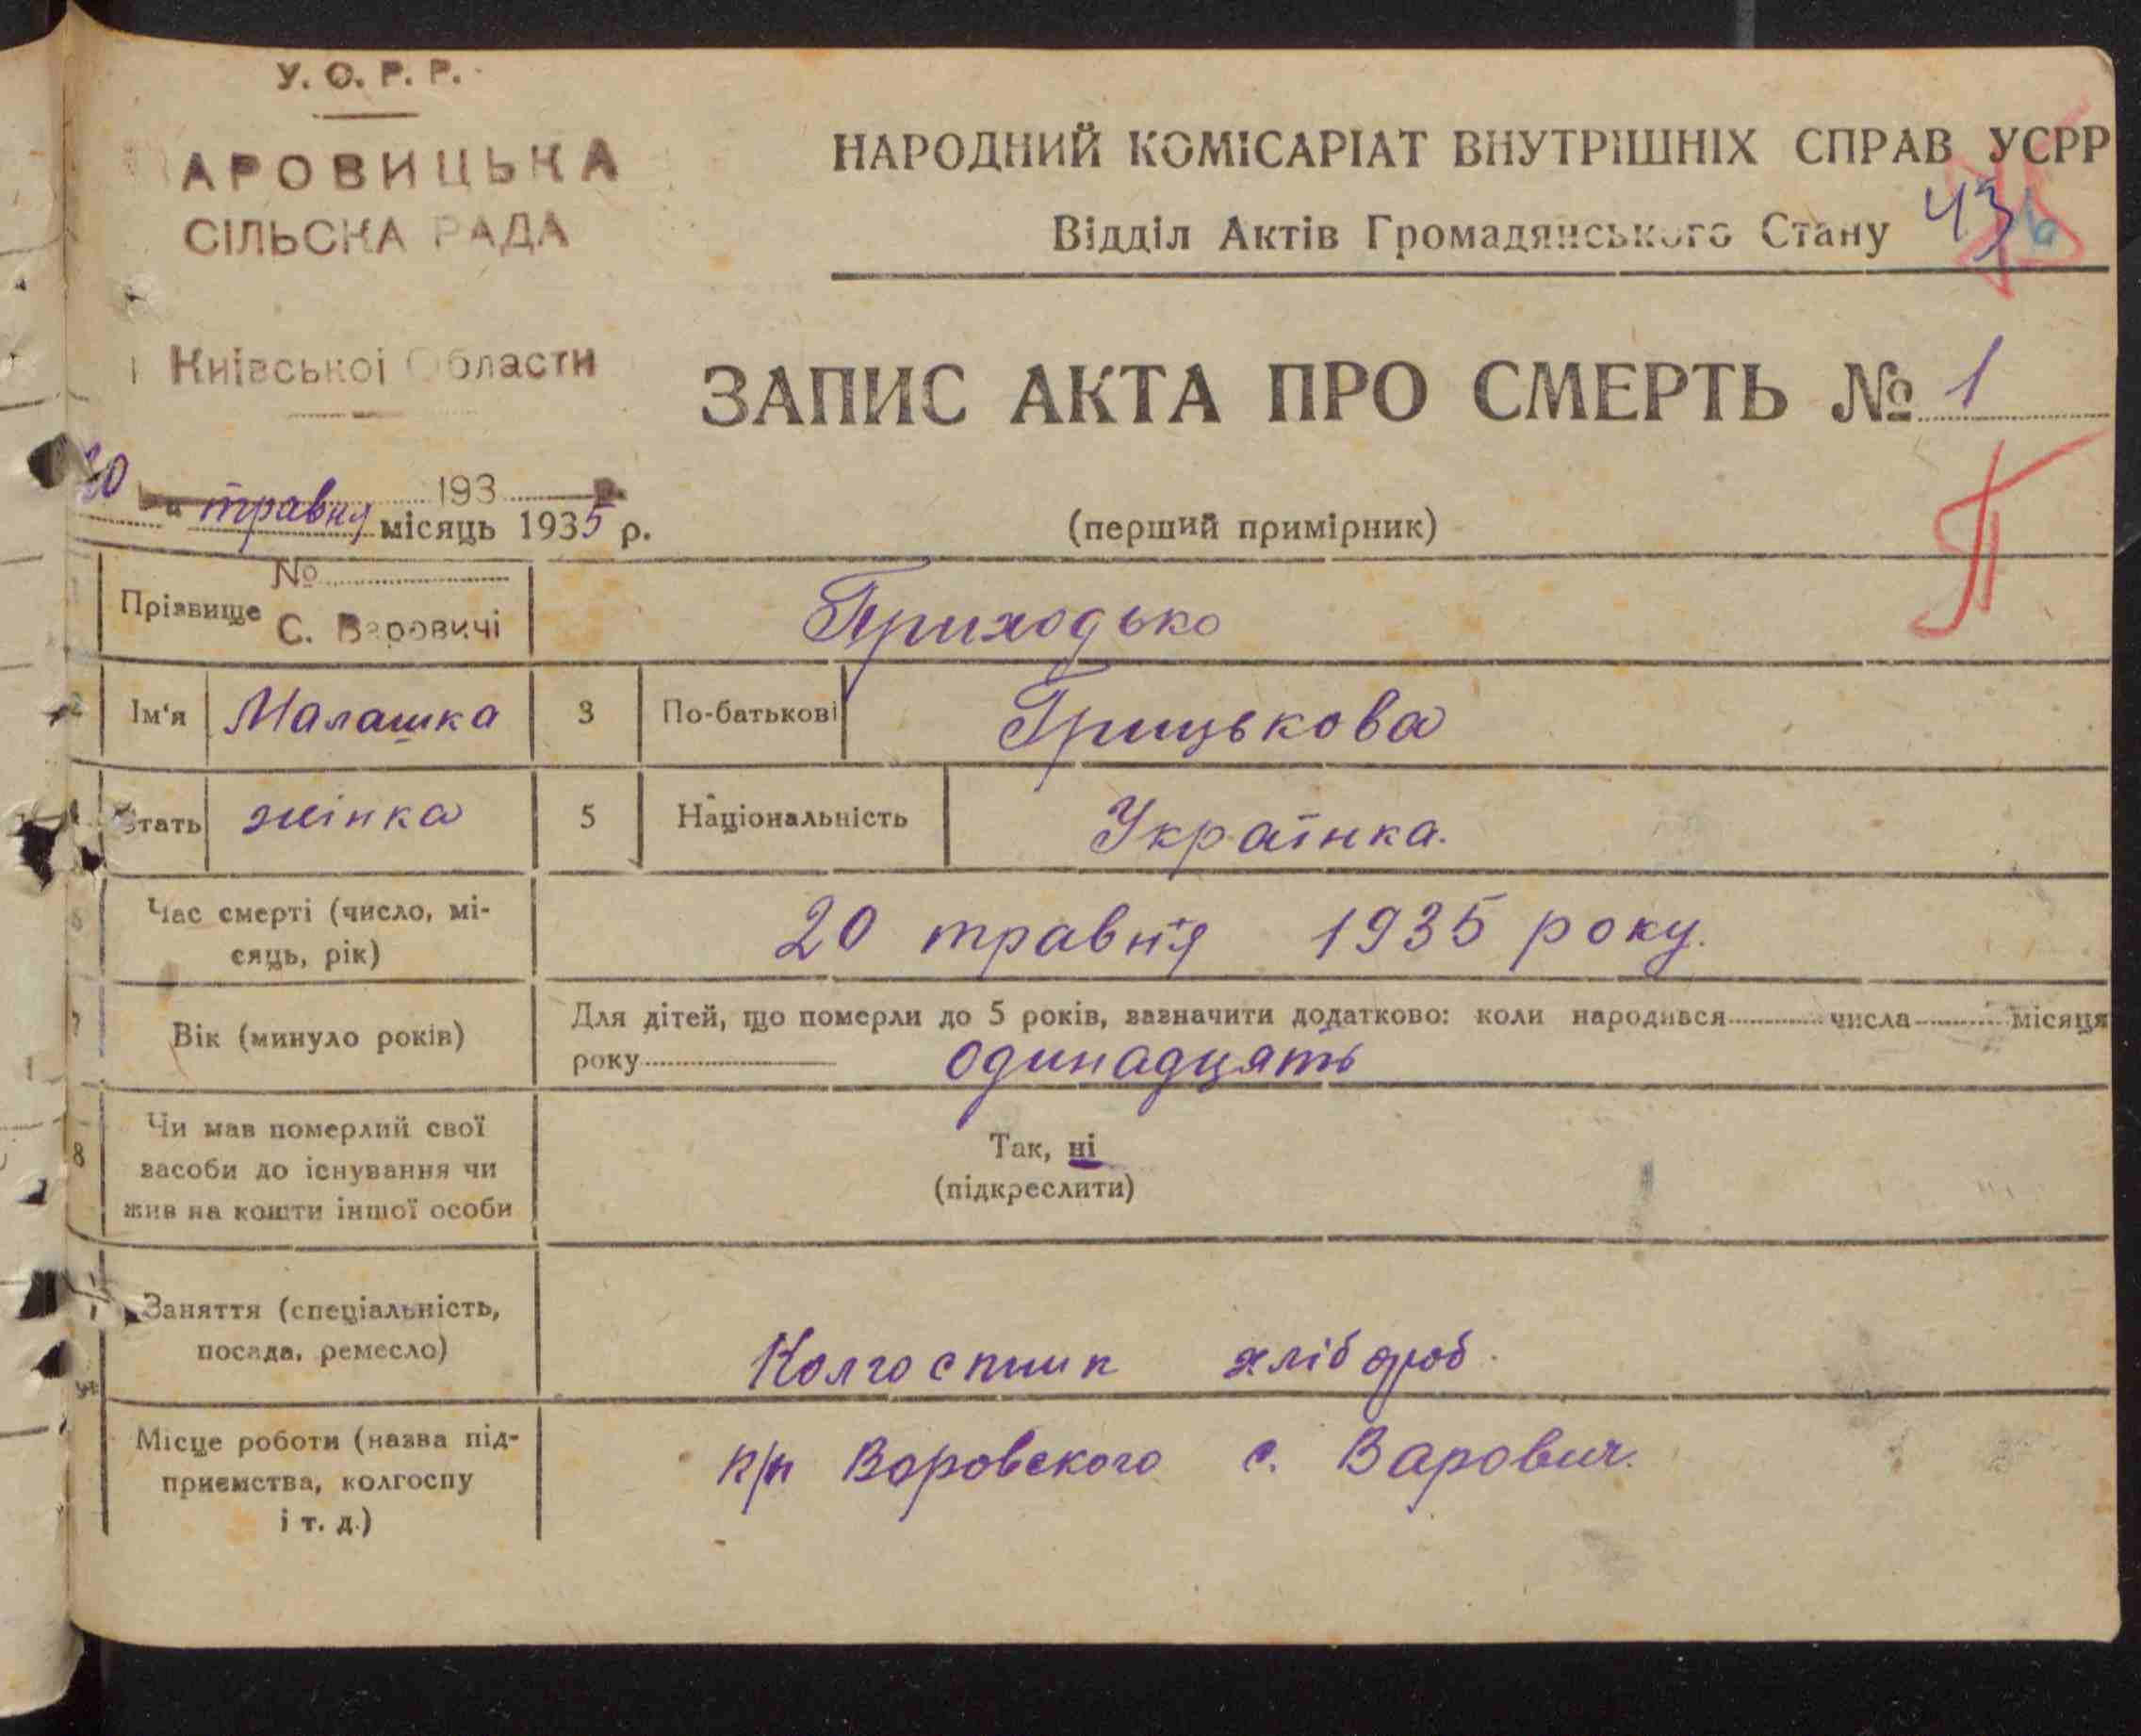 У. С. Р. Р.
АРОВИЦЬКА
СІЛЬСКА РАДА
Київської Области
НАРОДНИЙ КОМІСАРІАТ ВНУТРІШНІХ СПРАВ УСРР
Відділ Актів Громадянського Стану 43
ЗАПИС АКТА ПРО СМЕРТЬ № 1
193
20 травня місяць 1935 р.
(перший примірник)
П
№
Прізвище С. Варовичі Приходько
2 Ім'я Малашка 3 По-батькові Грицькова
Стать жінка 5 Національність Українка.
6 Час смерті (число, мі-
сяць, рік) 20 травня 1935 року.
7 Вік (минуло років) Для дітей, що померли до 5 років, зазначити додатково: коли народився числа місяця
року одинадцять
8 Чи мав померлий свої
засоби до існування чи
жив на кошти іншої особи
Так, ні
(підкреслити)
Заняття (спеціальність,
посада, ремесло) Колгоспник хлібороб.
Місце роботи (назва під-
приємства, колгоспу
і т. д.)
к/г Воровского с.Варович.